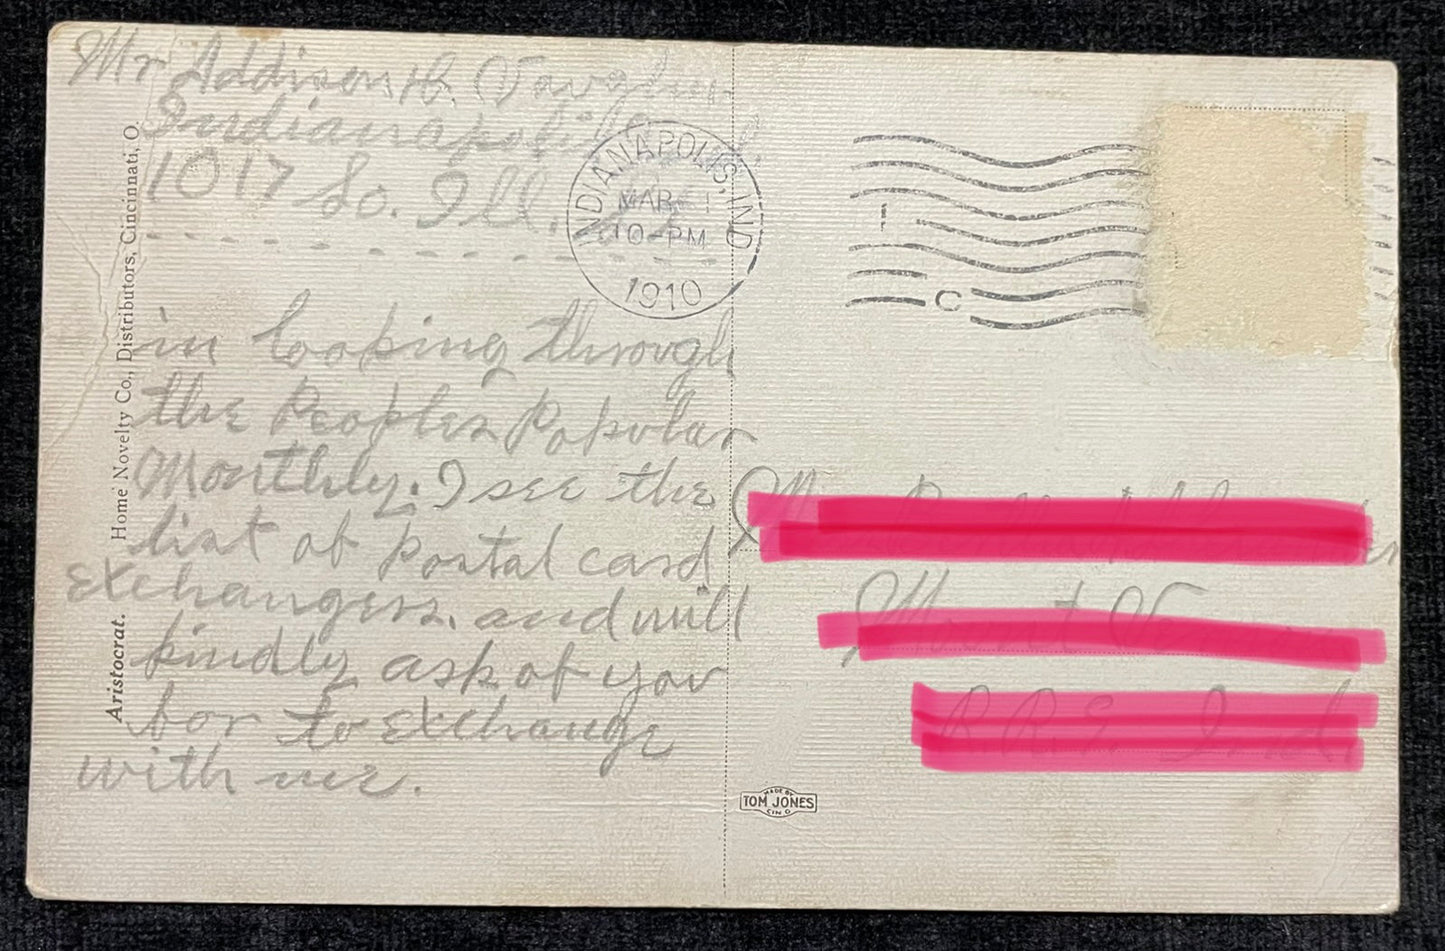 Mr Addison H.
Indianapolis
1017 So. Ill.
in looking through
the Peoples Popular
Monthly. I see the
list of postal card
Exchangers. and will
kindly ask of you
for to Exchange
with me.
Aristocrat. Home Novelty Co., Distributors, Cincinnati, O.
INDIANAPOLIS, IND
MAR 1
10-PM
1910
1 C
R.R. Ind.
MADE BY
TOM JONES
CIN O